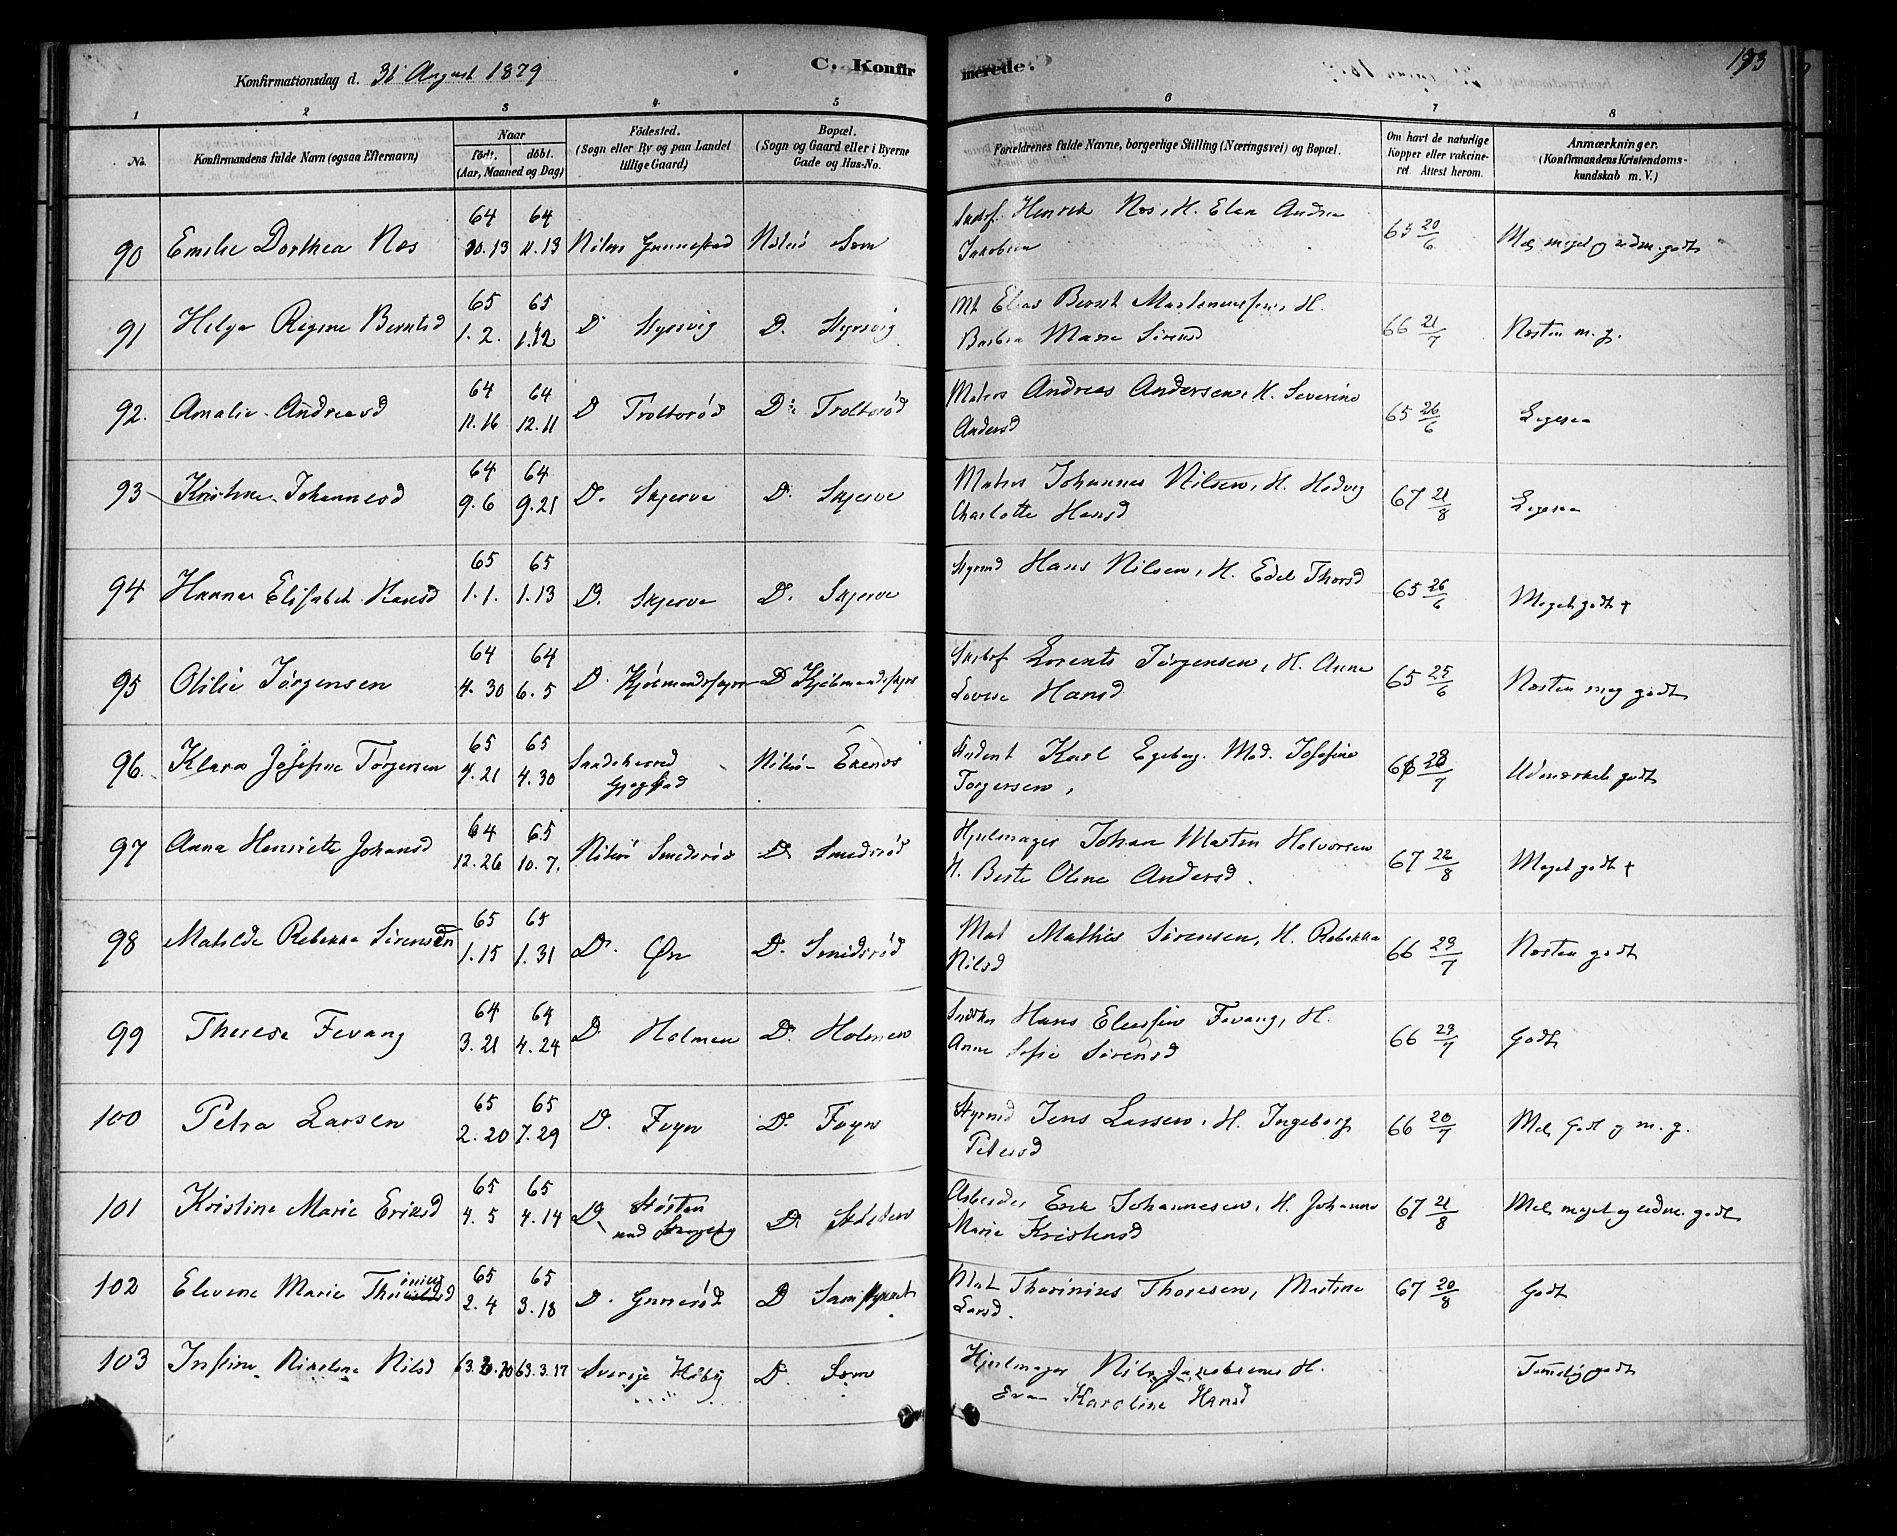 Konfirmationsdag d. 31 August 1879
C. Konfirmerede.
193
1 2 3 4 5 6 7 8
No. Konfirmandens fulde Navn (ogsaa Efternavn) Naar født. døbt. (Aar, Maaned og Dag) Fødested. (Sogn eller By og paa Landet tillige Gaard) Bopæl. (Sogn og Gaard eller i Byerne Gade og Hus-No. Forældrenes fulde Navne, borgerlige Stilling (Næringsvei) og Bopæl. Om havt de naturlige Kopper eller vakcineret. Attest herom. Anmærkninger. (Konfirmandens Kristendomskundskab m. V.)
90 Emilie Dorthea Næs 64 10.13 64 11.13 Nøterø Gunnestad Nøterø Sem Henrik Næs, H. Elen Andrea Jakobsen 65 20/6 Mel. meget og udm. godt
91 Helga Regine Berntsd 65 1.2. 65 1.12 D Styrsvig D. Styrsvig Mt Elias Bernt Martinussen, H. Barbra Marie Sørensd 66 21/7 Næsten m. g.
92. Amalie Andreasd 64 11.16 64 12.11 D Trolborød D: Trolborød Matros Andreas Andersen, H. Severine Andersd 65 26/6 Ligesaa
93 Kristine Johannesd 64 9.6 64 9.21 D. Skjerve D. Skjerve Matros Johannes Nilsen, H. Hedvig Charlotte Hansd 67 21/8 Ligesaa
94 Hanna Elisabet Hansd 65 1.1. 65 1.13 D. Skjerve D. Skjerve Styrmd Hans Nilsen, H. Edel Thorsd 65 26/6 Meget godt +
95 Otilie Jørgensen 64 4.30 64 6.5 D. Kjøbmandskjær D Kjøbmandskjær Skibsf Lorents Jørgensen, H. Anne Lovise Hansd 65 25/6 Næsten meg godt
96. Klara Josefine Torgersen 65 4.21 65 4.30 Sandeherred Gjogstad Nøterø Ekenes Student Karl Egeberg. Mod. Josefine Torgersen, 66 28/7 Udmærket godt
97 Anna Henriette Johansd 64 12.26 65 10.7. Nøterø Smedsrød D. Smedsrød Hjulmager Johan Martin Halvorsen H. Berte Oline Andersd. 67 22/8 Meget godt +
98 Matilde Rebekka Sørensen 65 1.15 65 1.31 D. Øen D. Smidsrød Mat Mathis Sørensen, H. Rebekka Nilsd 66 23/7 Næsten godt
99 Therese Fevang 64 3.21 64 4.24 D Holmen D. Holmen Snedker Hans Eliassen Fevang, H. Anne Sofie Sørensd 66 23/7 Godt
100 Petra Larsen 65 2.20 65 7.29 D. Foyn D. Foyn Styrmd Jens Larsen, H. Ingeborg Petersd 66 20/7 Mel. Godt og m. g.
101 Kristine Marie Eriksd 65 4.5 65 4.14 D. Støsten D. Arbeider Erik Johannesen, H. Johanne Marie Kristensd 67 21/8 Mel. meget og udm. godt
102 Elevine Marie Thoriniusd 65 2.4 65 3.18 D. Gunerød D Mat Thorinius Thoresen, Martine Larsd. 67 20/8 Godt
103 Justine Nikoline Nilsd 63.2.20 63.3.17 Sverige Håby D. Sem Hjulmager Nils Jakobsen H. Eva Karoline Hansd Temelig godt